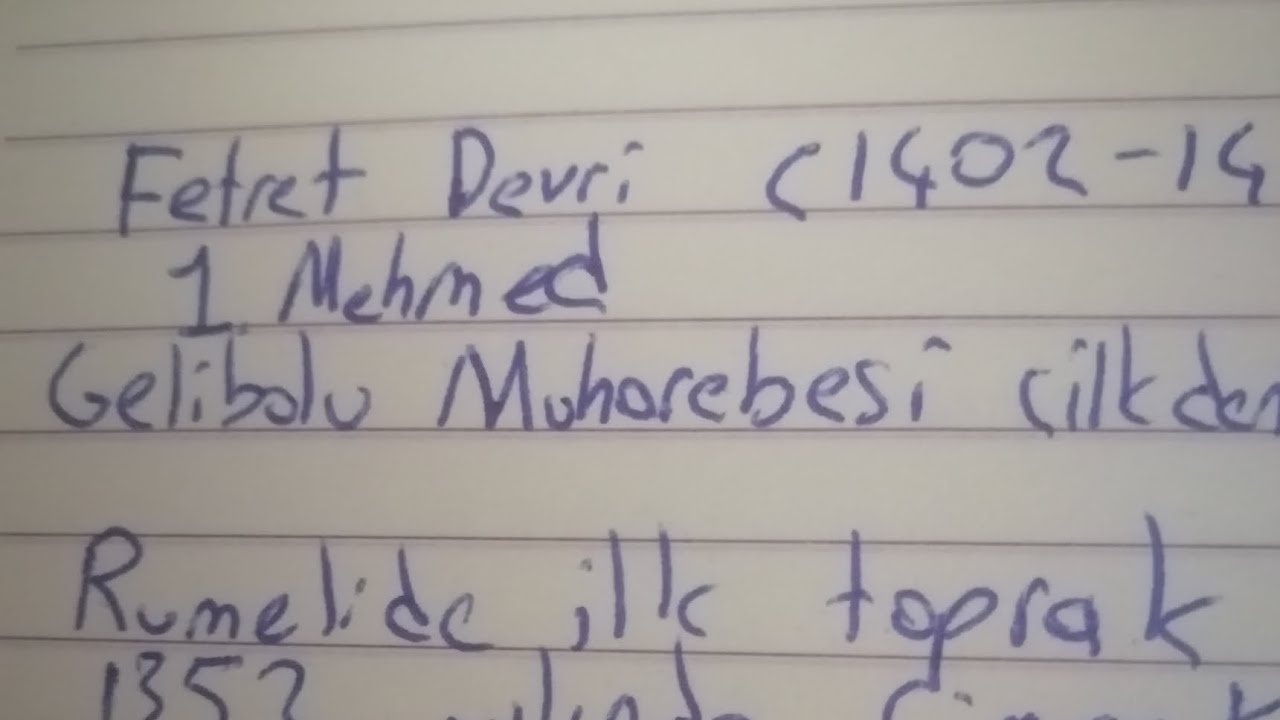 Fetret Devri (1402-14
1 Mehmed
Gelibolu Muharebesi (ilk den
Rumelide ilk toprak
1352 yılında